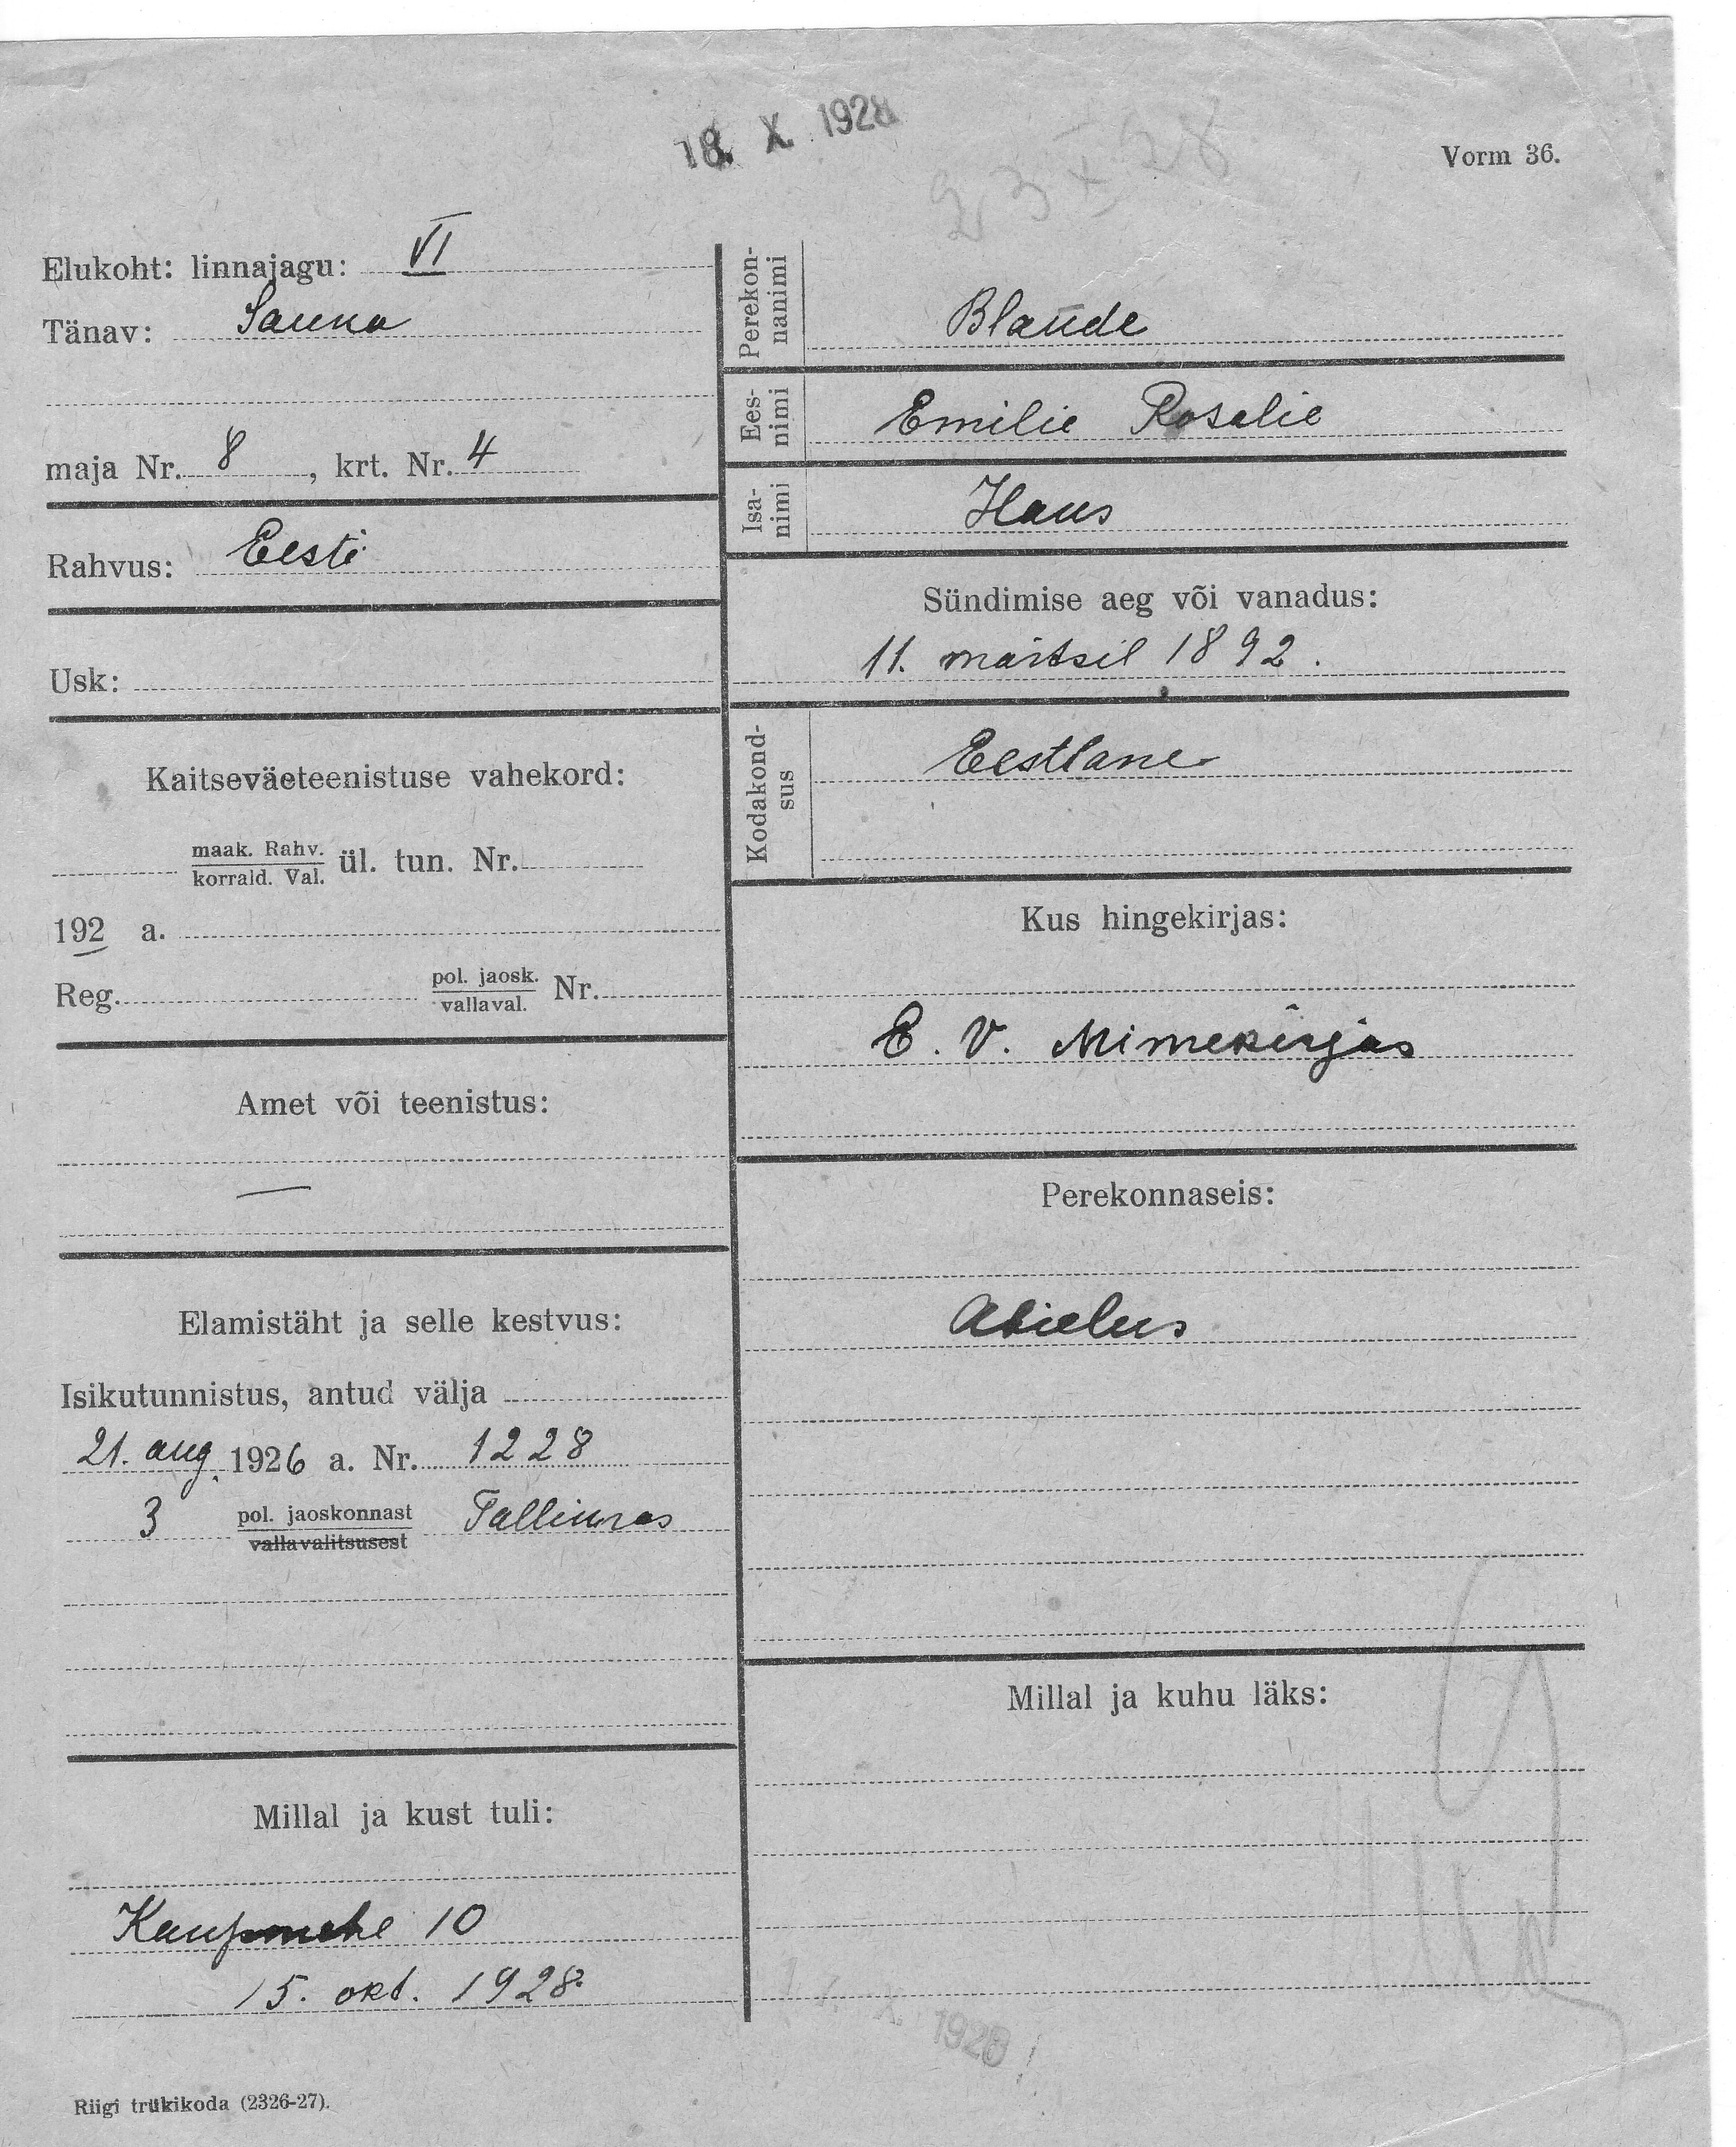 18. X. 1928
23 X 28
Vorm 36.
Elukoht: linnajagu: VI
Tänav: Sauna
maja Nr. 8, krt. Nr. 4
Rahvus: Eesti
Usk:
Kaitseväeteenistuse vahekord:
maak. Rahv.
korrald. Val.
ül. tun. Nr.
192 a.
Reg. pol. jaosk. Nr.
vallaval.
Amet või teenistus:
—
Elamistäht ja selle kestvus:
Isikutunnistus, antud välja
21. aug. 1926 a. Nr. 1228
3 pol. jaoskonnast Tallinnas
vallavalitsusest
Millal ja kust tuli:
Kaupmehe 10
15. okt. 1928.
Riigi trükikoda (2326-27).
Perekon-
nanimi
Blaude
Ees-
nimi
Emilie Rosalie
Isa-
nimi
Hans
Sündimise aeg või vanadus:
11. märtsil 1892.
Kodakond-
sus
Eestlane
Kus hingekirjas:
E. V. Nimekirjas
Perekonnaseis:
Abielus
Millal ja kuhu läks:
X. 1928